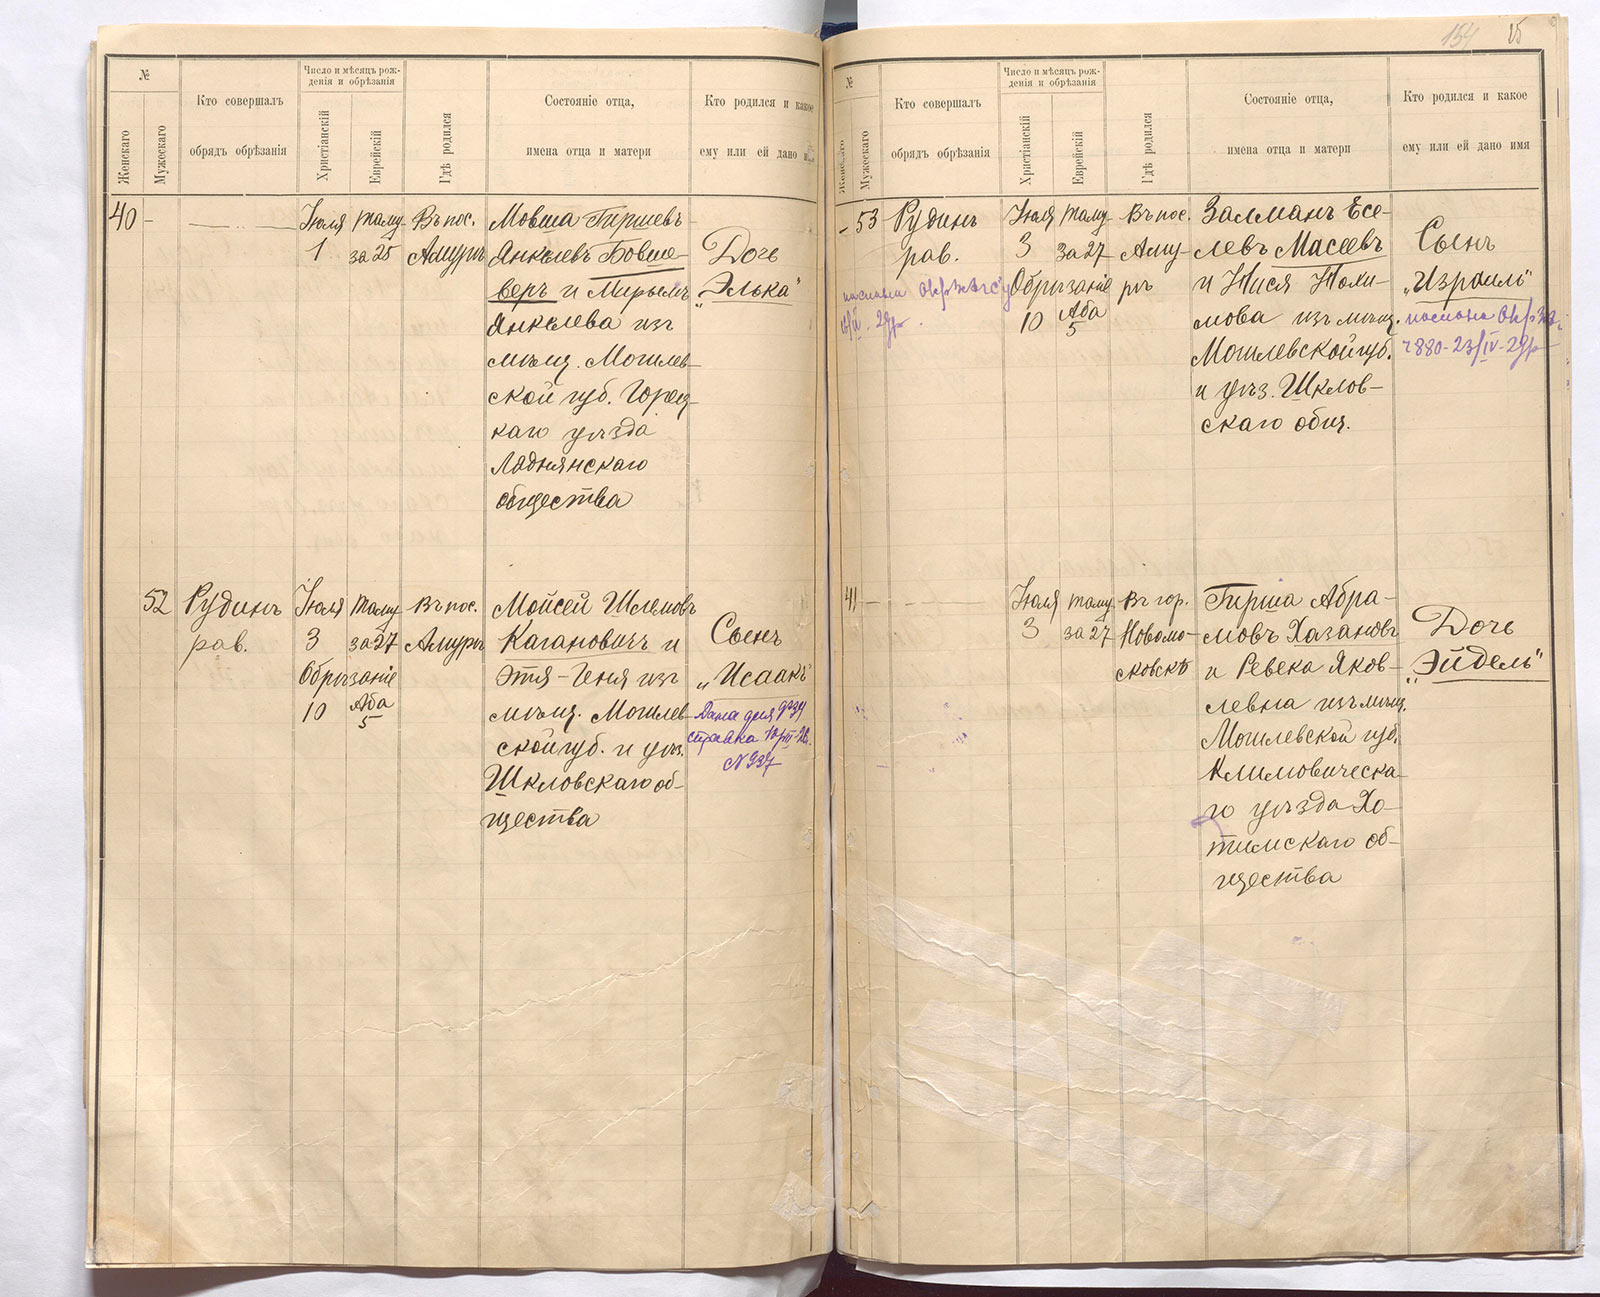 №
Женскаго
Мужескаго
Кто совершалъ
обрядъ обрѣзанія
Число и мѣсяцъ рож-
денія и обрѣзанія
Христіанскій
Еврейскій
Гдѣ родился
Состояніе отца,
имена отца и матери
Кто родился и какое
ему или ей дано
40
Іюля
1
Таму-
за 25
Въ пос.
Амуръ
Мовша Гиршевъ
Янкелевъ Бовше-
веръ и Мирьямъ
Янкелева изъ
мѣщ. Могилев-
ской губ. Горец-
каго уѣзда
Ляднянскаго
общества
Дочь
"Элька"
52
Рудинъ
рав.
Іюля
3
Обрѣзаніе
10
Таму-
за 27
Аба
5
Въ пос.
Амуръ
Мойсей Шлемовъ
Кагановичъ и
Этя-Геня изъ
мѣщ. Могилев-
ской губ. и уѣз.
Шкловскаго об-
щества
Сынъ
"Исаакъ"
Дана для
справка
N 937
154
25
№
Женскаго
Мужескаго
Кто совершалъ
обрядъ обрѣзанія
Число и мѣсяцъ рож-
денія и обрѣзанія
Христіанскій
Еврейскій
Гдѣ родился
Состояніе отца,
имена отца и матери
Кто родился и какое
ему или ей дано имя
53
Рудинъ
рав.
Іюля
3
Обрѣзаніе
10
Таму-
за 27
Аба
5
Въ пос.
Аму-
ръ
Залманъ Есе-
левъ Масеевъ
и Нися Нохи-
мова изъ мѣщ.
Могилевской губ.
и уѣз. Шклов-
скаго общ.
Сынъ
"Израиль"
880-23/IV-29р
41
Іюля
3
Таму-
за 27
Въ гор.
Новомо-
сковскѣ
Гирша Абра-
мовъ Хазановъ
и Ревека Яков-
левна изъ мѣщ.
Могилевской губ.
Климовическа-
го уѣзда Хо-
тимскаго об-
щества
Дочь
"Эйдель"